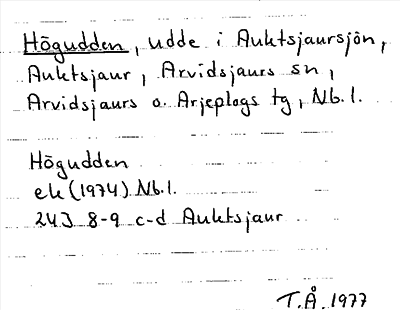 Högudden, udde i Auktsjaursjön,
Auktsjaur, Arvidsjaurs sn,
Arvidsjaurs o. Arjeplogs tg, Nb.l.
Högudden
ek (1974) Nb.l.
24J 8-9 c-d Auktsjaur
T.Å. 1977